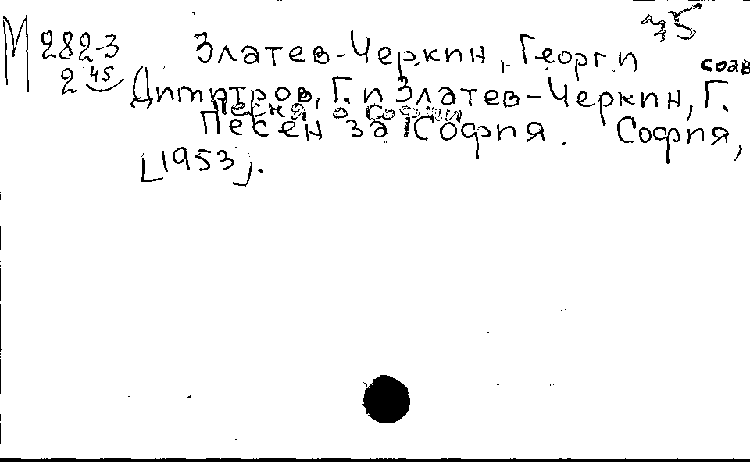 45
М 282-3 Златев-Черкин, Георги соав
2 45 Димитров, Г. и Златев-Черкин, Г.
Песня о Софии
Песен за София. София,
[1953].